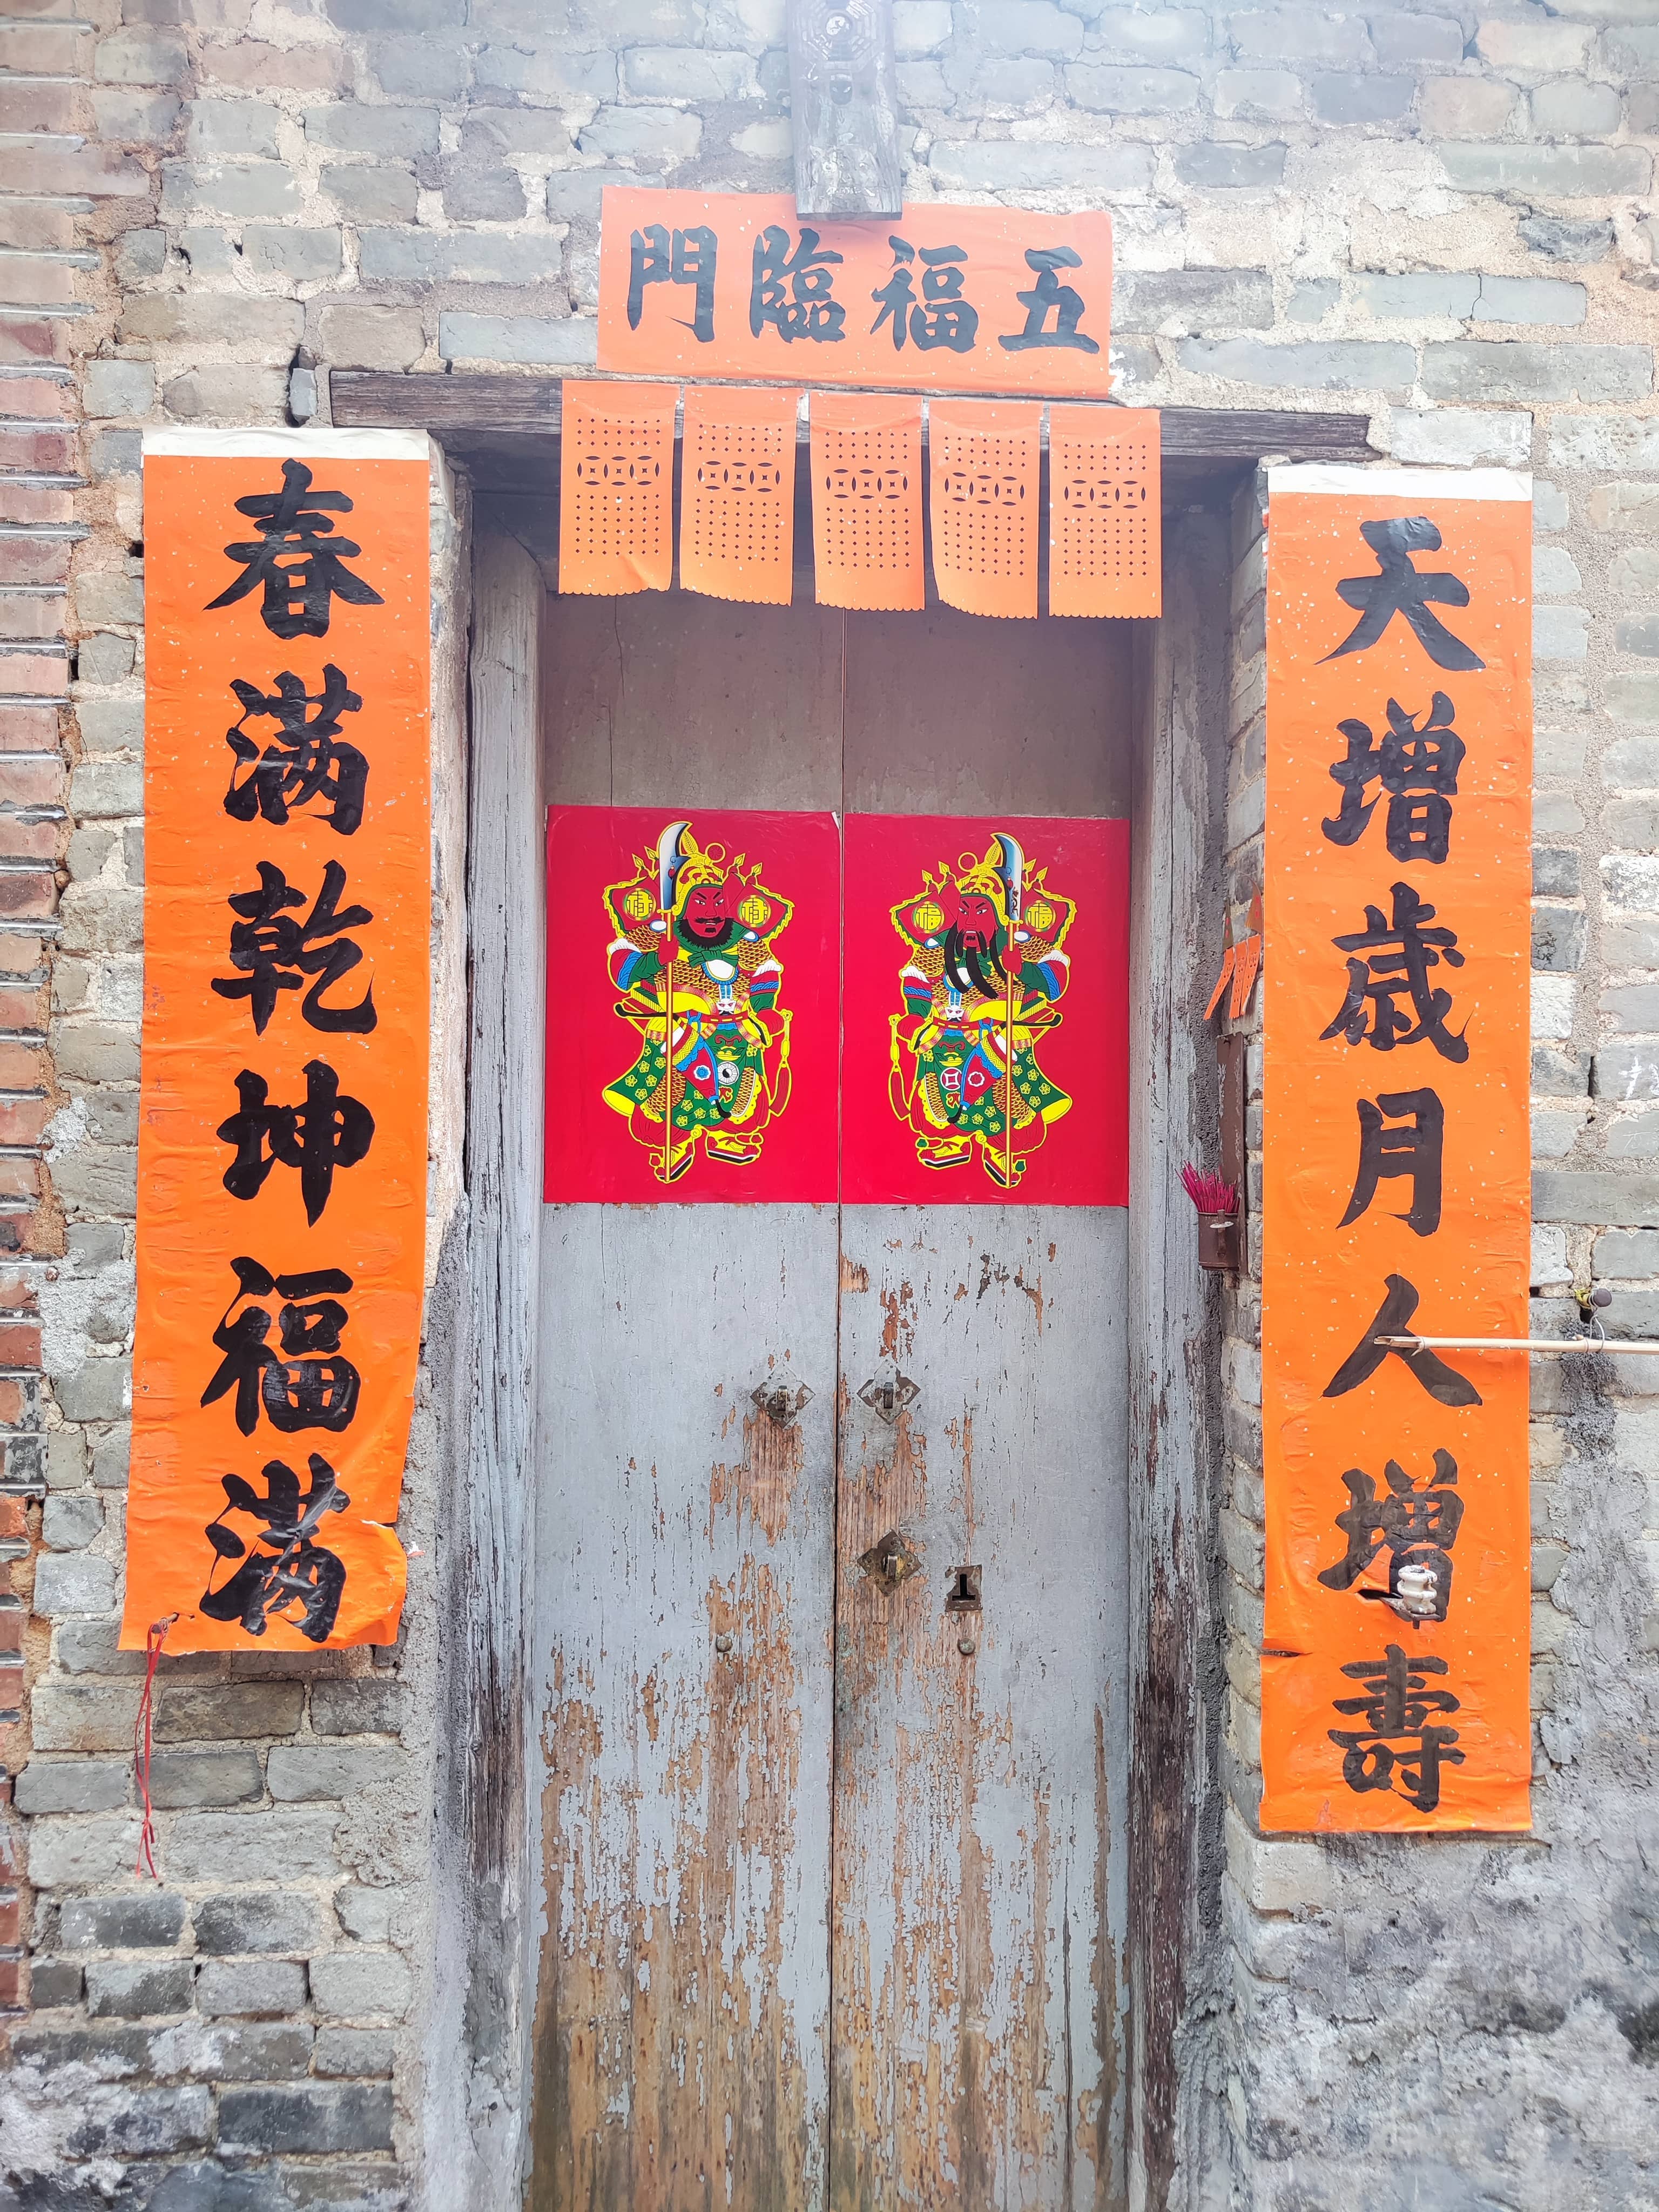 五福臨門
天增歲月人增壽
春滿乾坤福滿